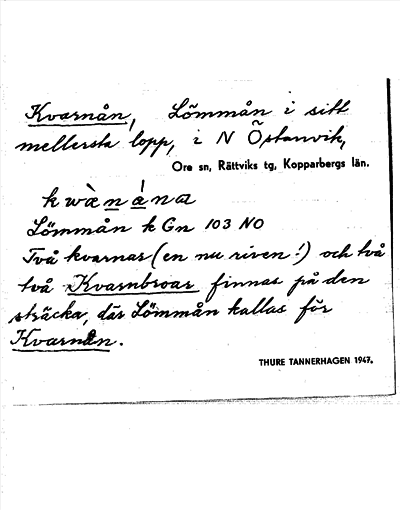 Kvarnån, Lömmån i sitt
mellersta lopp, i N Östanvik,
Ore sn, Rättviks tg, Kopparbergs län.
kwànána
Lömmån k Gn 103 NO
Två kvarnar (en nu riven!) och två
två Kvarnbroar finnas på den
sträcka, där Lömmån kallas för
Kvarnån.
THURE TANNERHAGEN 1947.